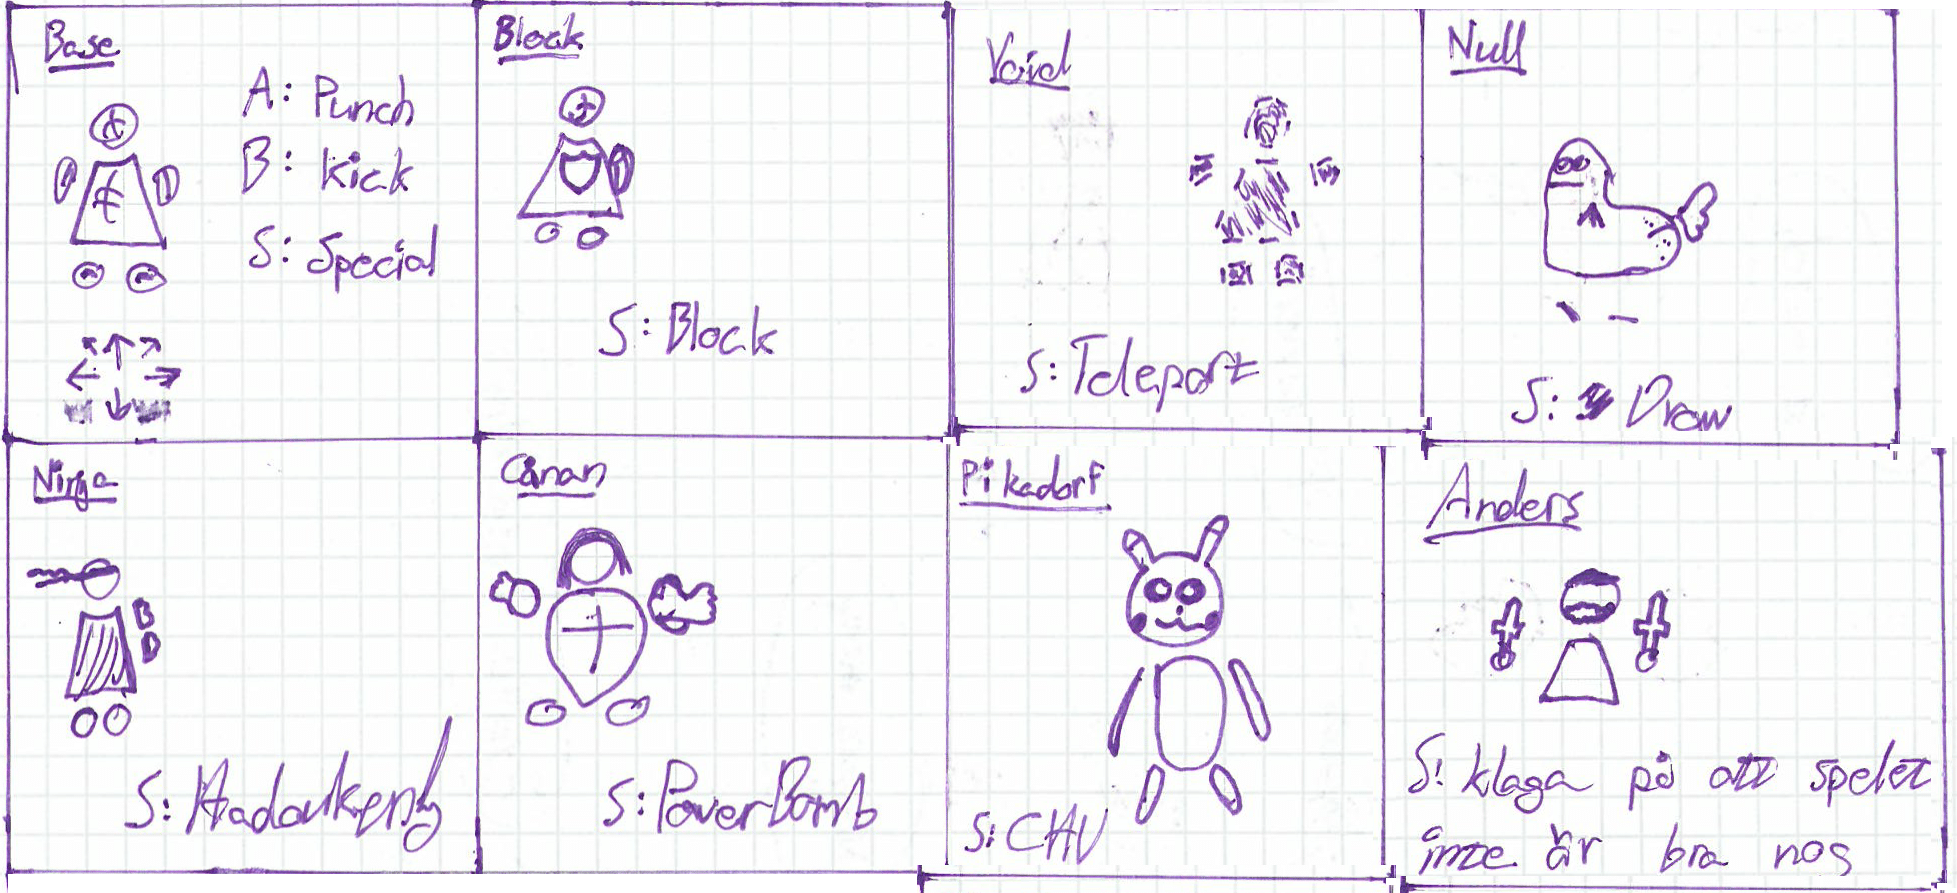 Base
A: Punch
B: Kick
S: Special
Block
S: Block
Void
S: Teleport
Null
S: Draw
Ninja
S:
Canan
S: PowerBomb
Pikadorf
S: CHU
Anders
S: klaga på att spelet
inte är bra nog